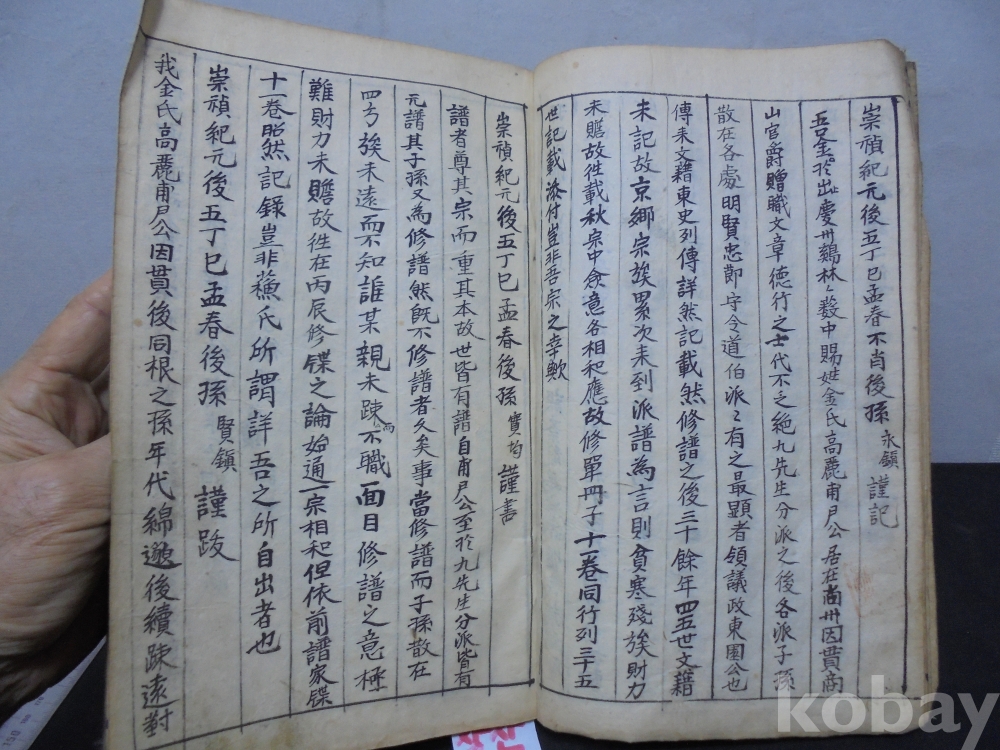 崇禎紀元後五丁巳孟春不肖後孫 永鎭 謹記
吾金於出慶州鷄林林數中賜姓金氏高麗甫尸公居在尙州因貫商
山官爵贈職文章德行之士代不乏絶九先生分派之後各派子孫
散在各處明賢忠節守令道伯派々有之最顯者領議政東園公也
傳来文籍東史列傳詳然記載然修譜之後三十餘年四五世文籍
未記故京鄉宗族累次来到派譜為言則貧寒殘族財力
未贍故徃載秋宗中僉意各相和應故修單册子十一卷同行列三十五
世記載添付豈非吾宗之幸歟
崇禎紀元後五丁巳孟春後孫 寶均 謹書
譜者尊其宗而重其本故世皆有譜自甫尸公至於九先生分派皆有
元譜其子孫又為修譜然既不修譜者久矣事當修譜而子孫散在
四方族未遠而不知誰某親未踈而不職面目修譜之意極
難財力未贍故徃在丙辰修牒之論始通一宗相和但依前譜家牒
十一卷昭然記錄豈非蘓氏所謂詳吾之所自出者也
崇禎紀元後五丁巳孟春後孫 賢鎭 謹跋
我金氏高麗甫尸公因貫後同根之孫年代綿邈後續踈遠對
kobay